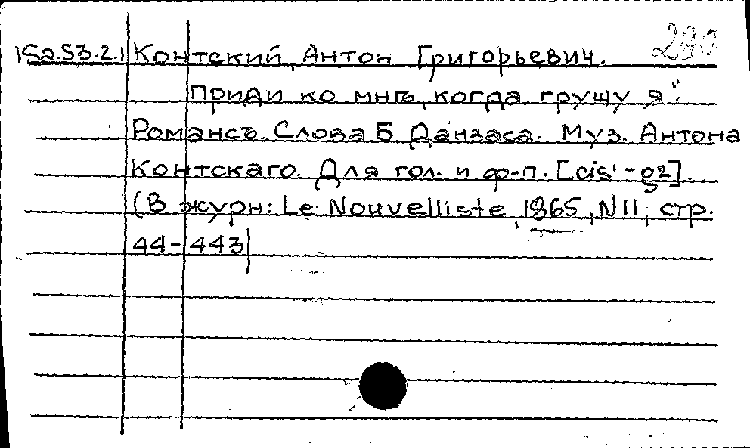 Контский, Антон Григорьевич.
Приди ко мнѣ, когда грущу я".
Романсъ. Слова Б Данзаса. Муз. Антона
Контскаго. Для гол. и ф-п. [cis' - g2].
(В журн: Le Nouvelliste, 1865, N11, стр.
44-443)